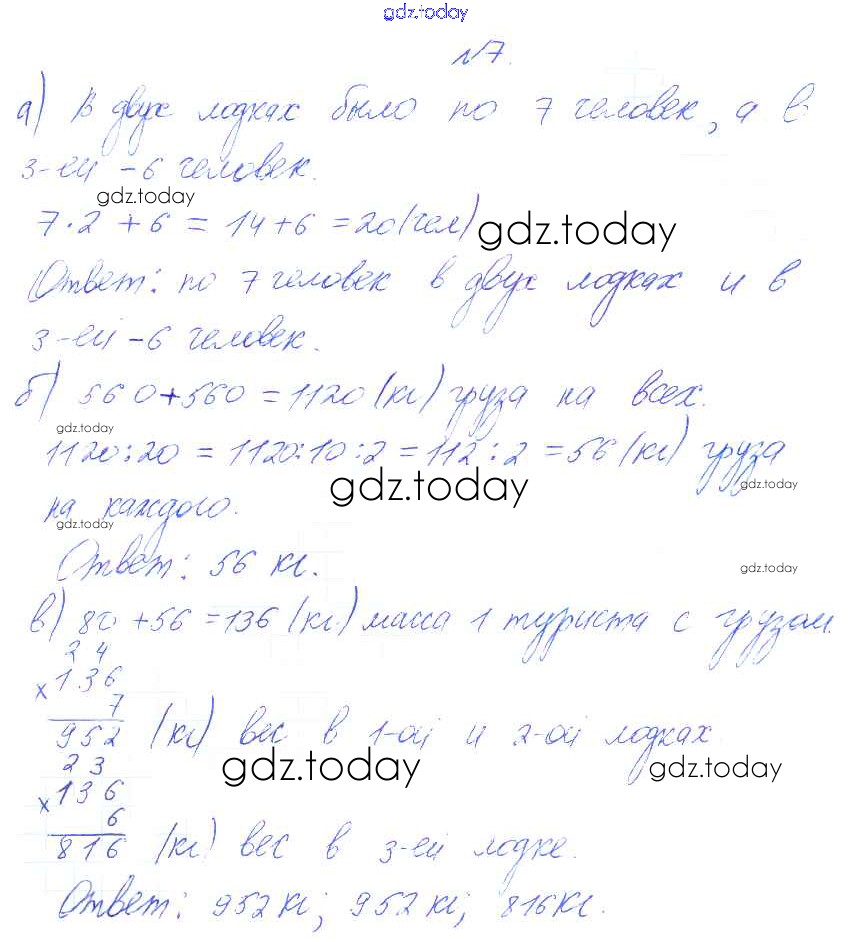 gdz.today
№7.
а) В двух лодках было по 7 человек, а в
3-ей - 6 человек.
gdz.today
7·2 + 6 = 14+6 = 20 (чел) gdz.today
Ответ: по 7 человек в двух лодках и в
3-ей - 6 человек.
б) 560+560 = 1120 (кг) груза на всех.
gdz.today
1120:20 = 1120:10:2 = 112:2 = 56 (кг) груза
gdz.today gdz.today
на каждого.
gdz.today
Ответ: 56 кг. gdz.today
в) 80 + 56 = 136 (кг) масса 1 туриста с грузом.
2 4
× 136
7
952 (кг) вес в 1-ой и 2-ой лодках.
2 3 gdz.today gdz.today
× 136
6
816 (кг) вес в 3-ей лодке.
Ответ: 952 кг; 952 кг; 816 кг.